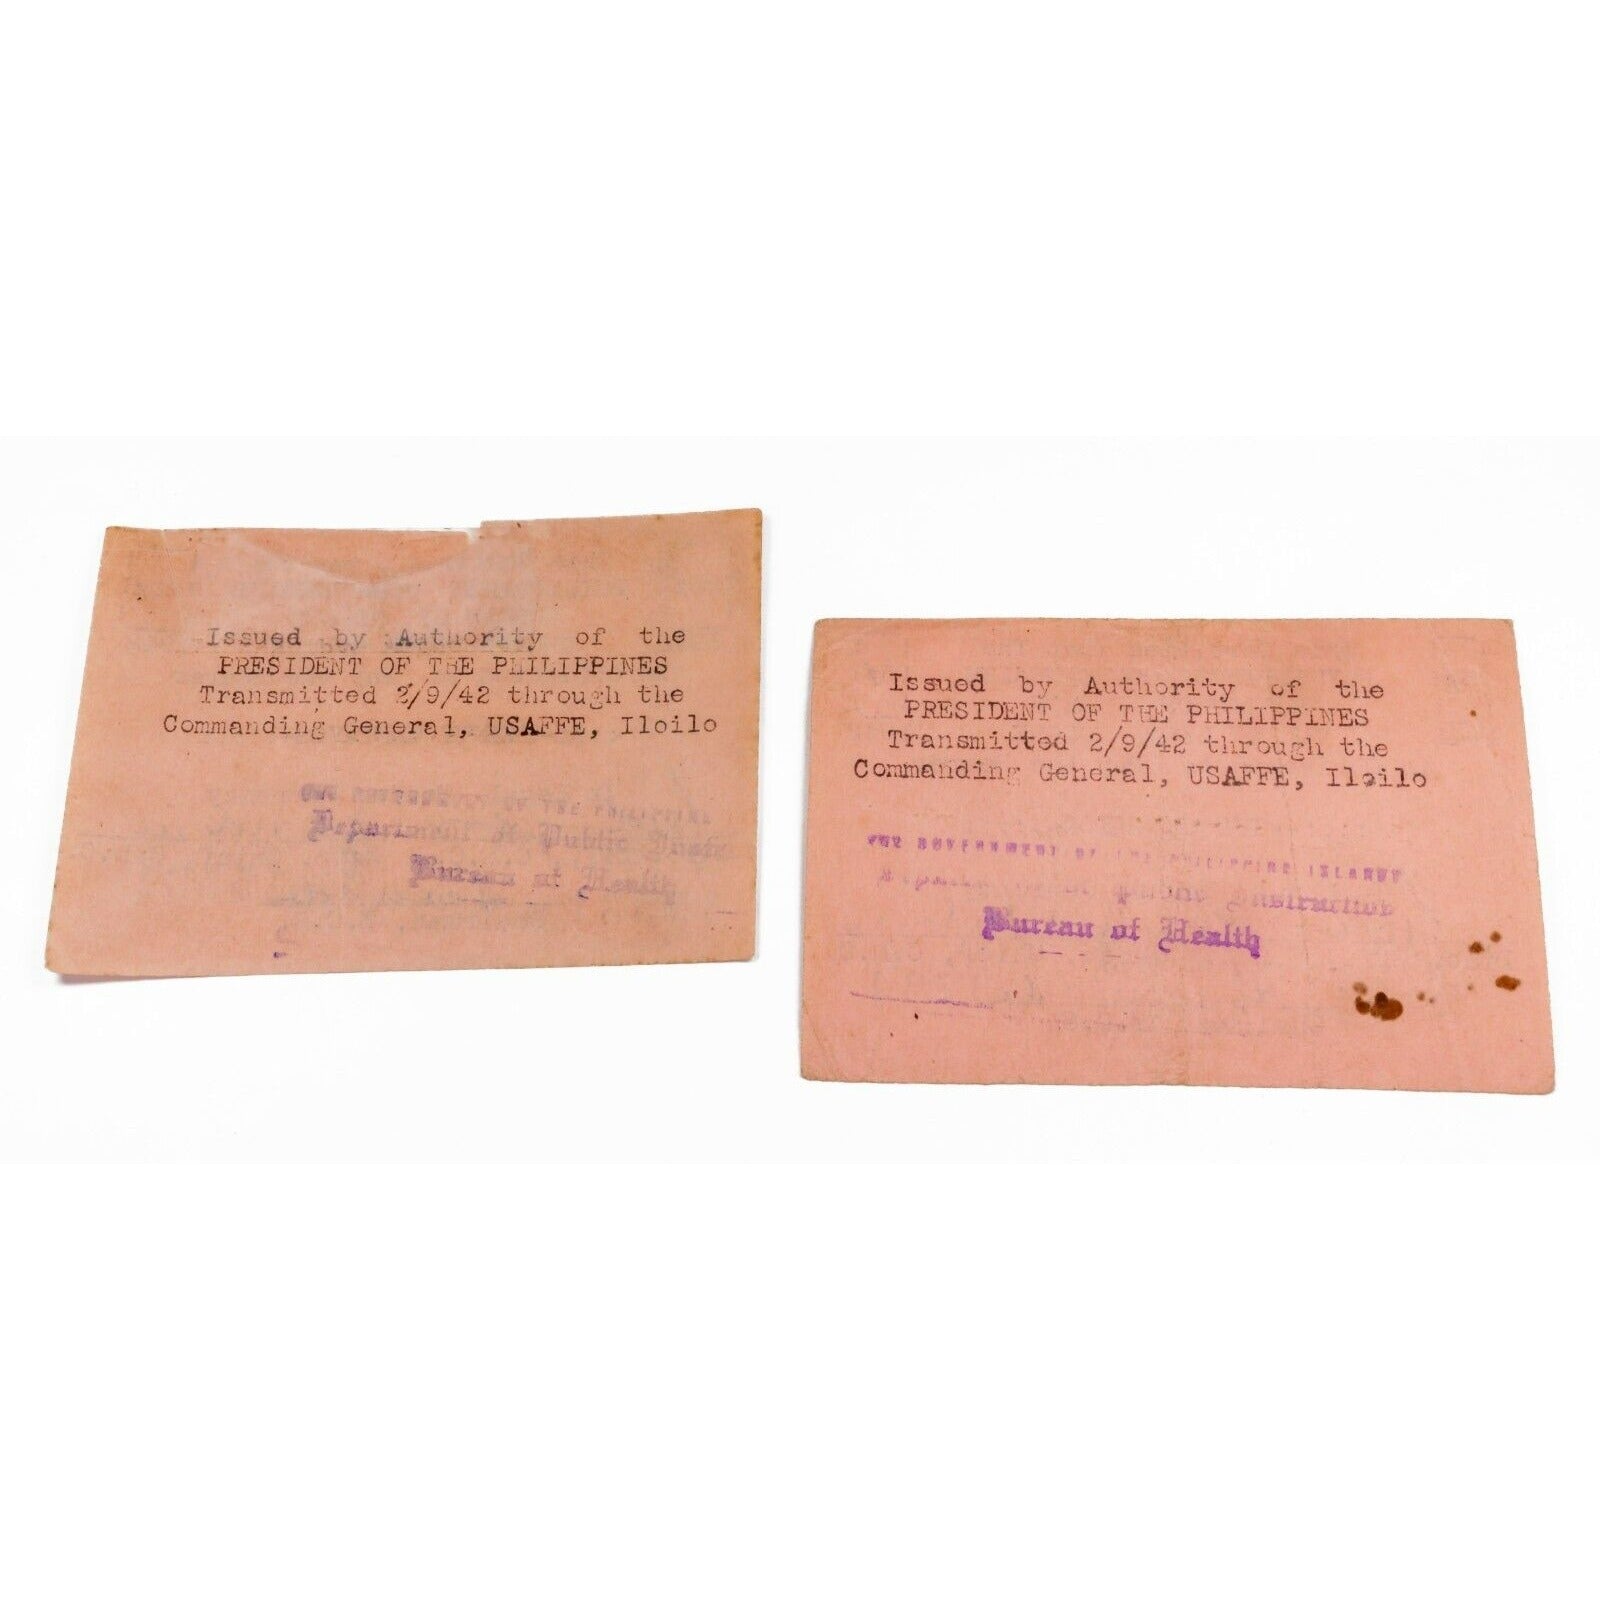 Issued by Authority of the
PRESIDENT OF THE PHILIPPINES
Transmitted 2/9/42 through the
Commanding General, USAFFE, Iloilo
GOVERNMENT OF THE PHILIPPINE
Department of Public
Bureau of Health
Issued by Authority of the
PRESIDENT OF THE PHILIPPINES
Transmitted 2/9/42 through the
Commanding General, USAFFE, Iloilo
THE GOVERNMENT OF THE PHILIPPINE ISLANDS
Department of Public Instruction
Bureau of Health